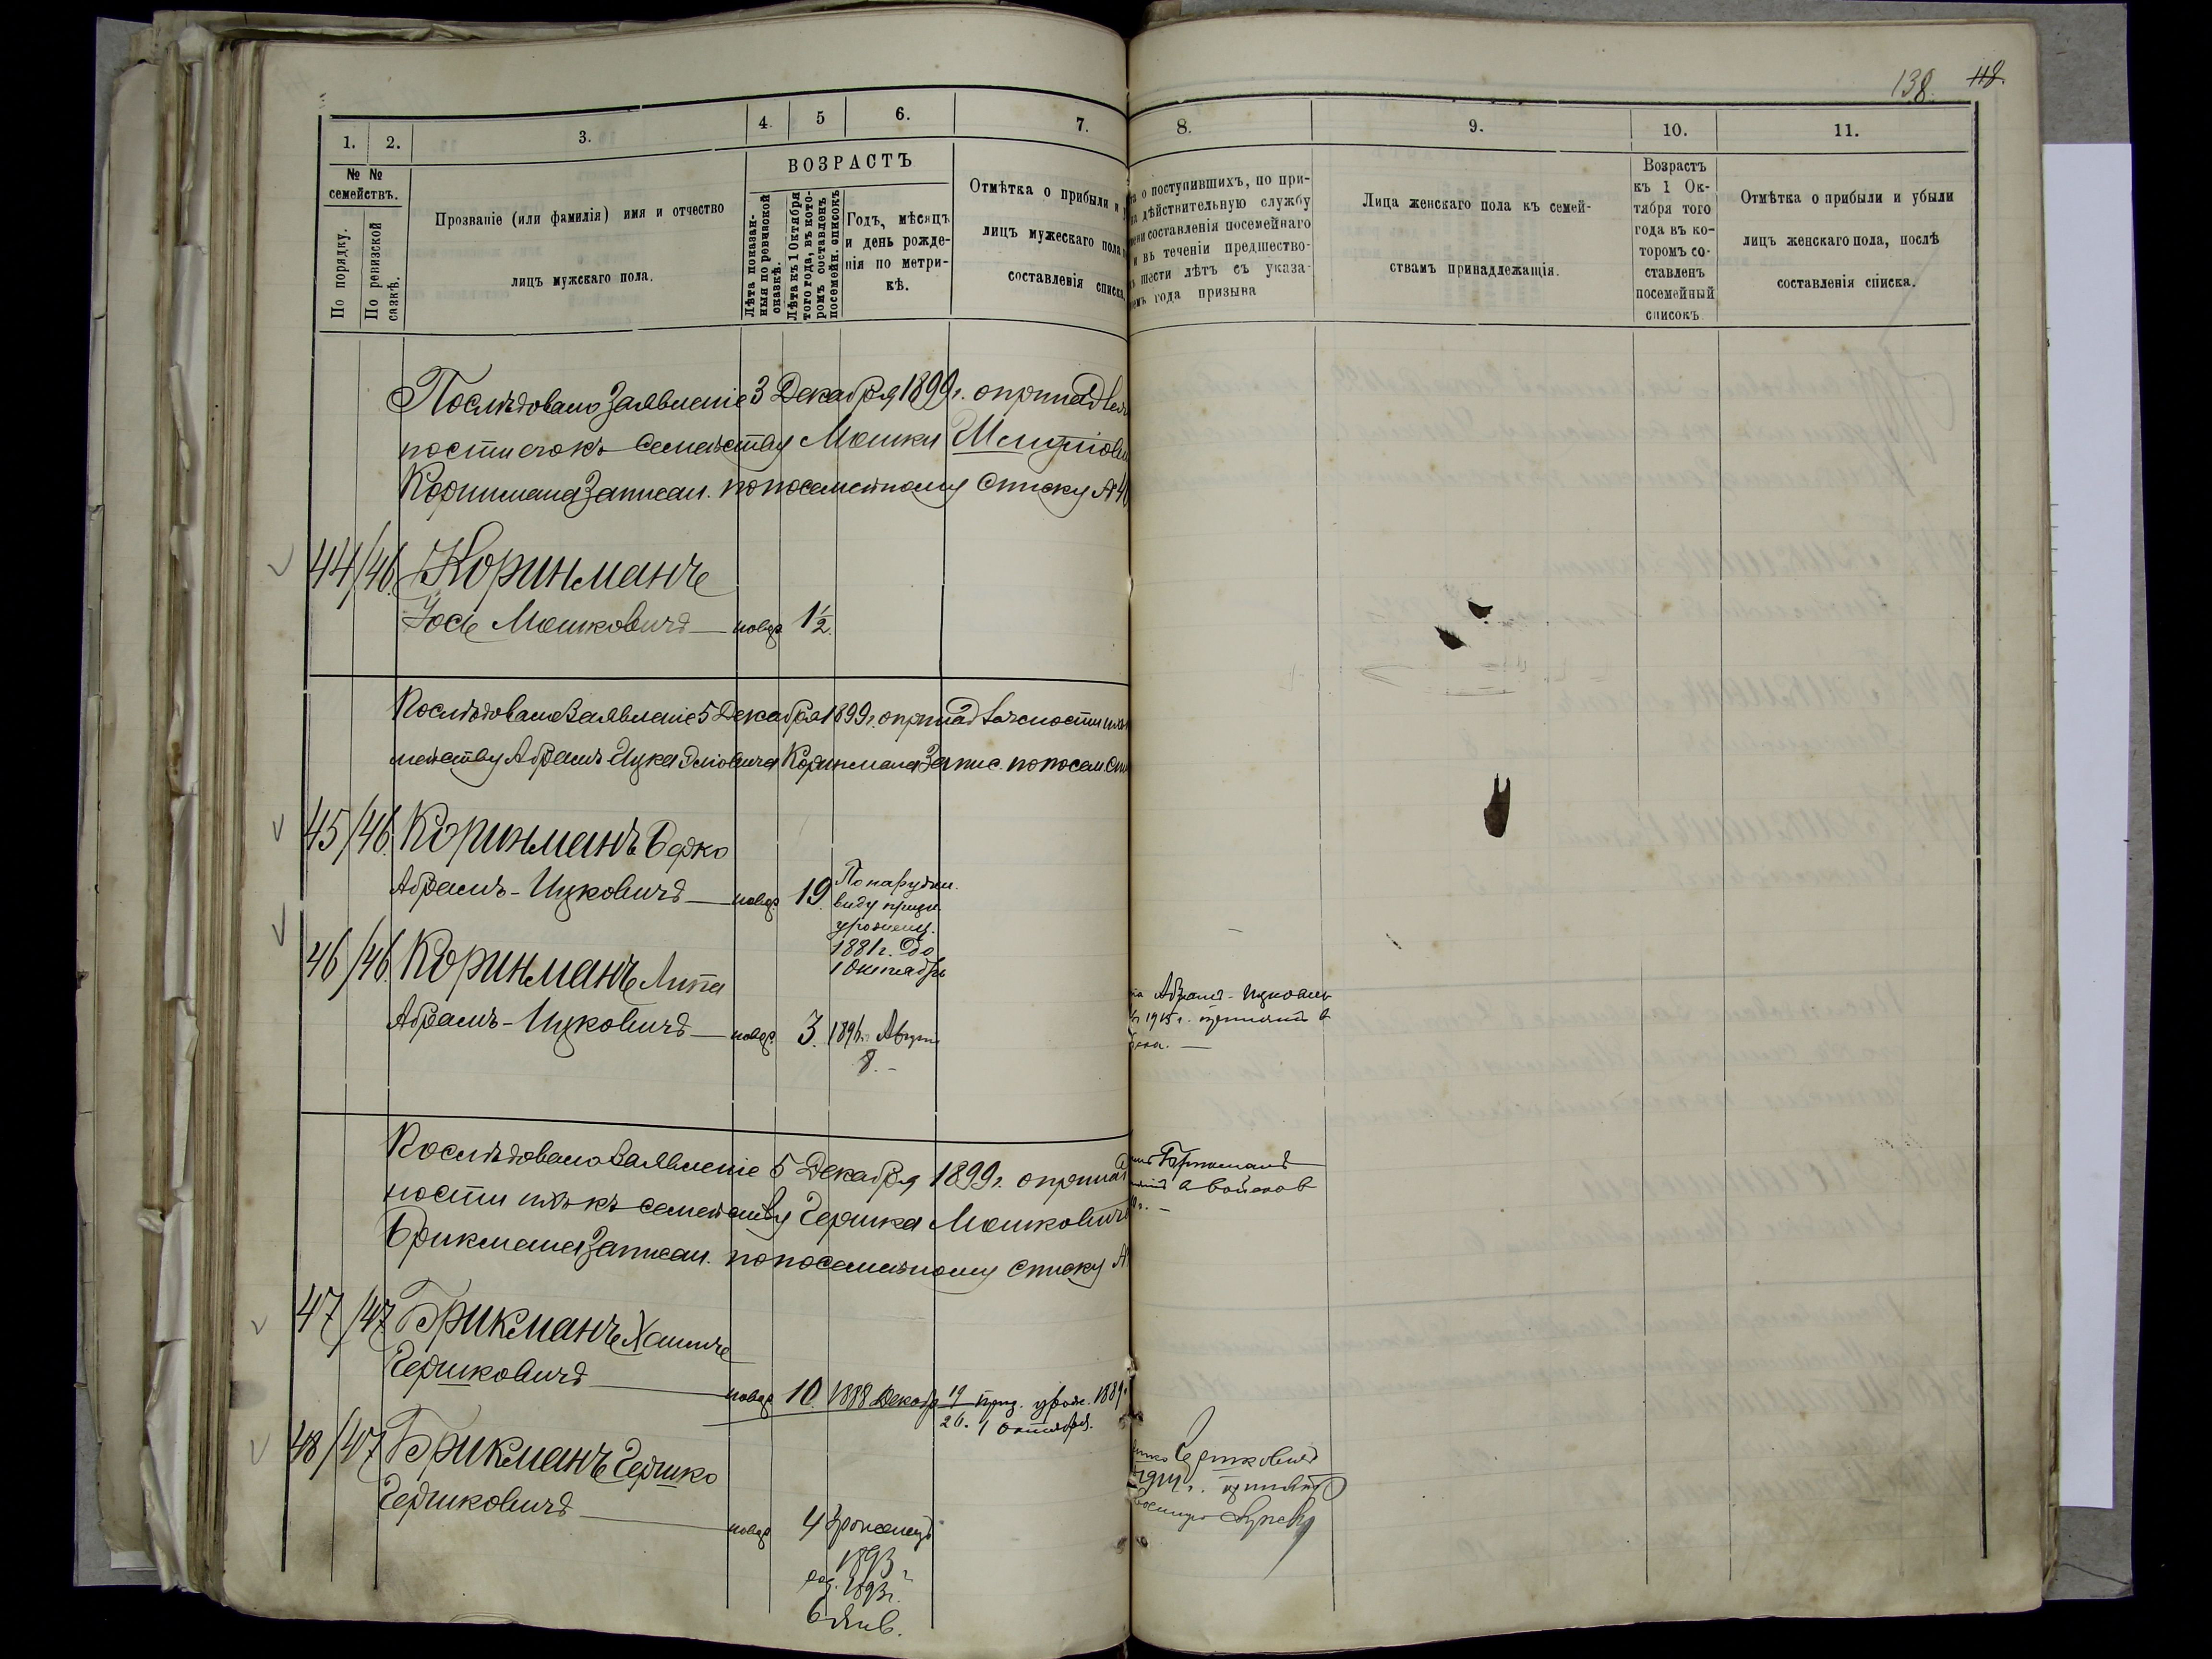 138. 118.
1. 2. 3. 4. 5 6. 7. 8. 9. 10. 11.
№ № семействъ.
По порядку.
По ревизской сказкѣ.
Прозваніе (или фамилія) имя и отчество
лицъ мужскаго пола.
ВОЗРАСТЪ
Лѣта показан-
ныя по ревизской
скавкѣ.
Лѣта къ 1 Октября
того года, въ кото-
ромъ составленъ
посемейн. списокъ
Годъ, мѣсяцъ
и день рожде-
нія по метри-
кѣ.
Отмѣтка о прибыли и
лицъ мужескаго пола
составленія списка,
о поступившихъ, по при-
дѣйствительную службу
составленія посемейнаго
въ теченіи предшество-
шести лѣтъ съ указа-
года призыва
Лица женскаго пола къ семей-
ствамъ принадлежащія.
Возрастъ
къ 1 Ок-
тября того
года въ ко-
торомъ со-
ставленъ
посемейный
списокъ
Отмѣтка о прибыли и убыли
лицъ женскаго пола, послѣ
составленія списка.
Послѣдовало Заявленіе 3 Декабря 1899 г. о принадлеж
ности его къ семейству Мошки Шмулiови
Коринмана Записан. по посемейному списку № 46
44/46. Коринманъ
Іось Мошковичъ — новор 1½.
Послѣдовало Заявленіе 5 Декабря 1899 г. о принадлежности ихъ
мейству Абрамъ Ицка Коринмана Запис. по посем. сп
45/46. Коринманъ Берко
Абрамъ-Ицковичъ — новор 19
По наружн.
виду призн.
уроженц.
1881 г. до
1 Октября
46/46. Коринманъ Липа
Абрамъ-Ицковичъ — новор. 3. 1896 г. Август
8. -
Абрамъ-Ицкович
1915 г. принятъ в
Послѣдовало Заявленіе 5 Декабря 1899 г. о принад
ности ихъ къ семейству Гершка Мошковичъ
Брикмана Записан. по посемейному списку №
Брикманъ
в войсков
47/47 Брикманъ Хаимъ
Гершковичъ — новор 10. 1888 Декабр 19/26. приз. урож. 1889 г.
1 октября.
48/47 Брикманъ Гершко
Гершковичъ — новор 4 Уроженецъ
1893 г
род. 1893 г.
6 Янв.
Гершковичъ
1914 г. принятъ
службу